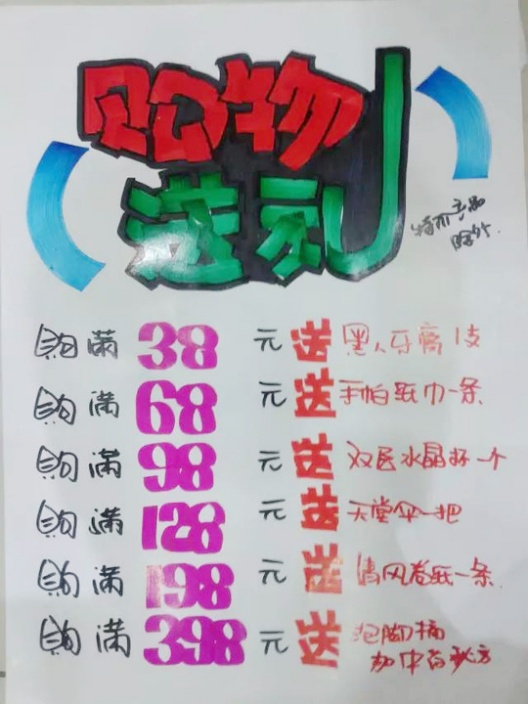 购物
送礼
特价产品
除外
购满38元送黑人牙膏1支
购满68元送手帕纸巾一条
购满98元送双层水晶杯一个
购满128元送天堂伞一把
购满198元送清风卷纸一条
购满398元送泡脚桶
加中药秘方